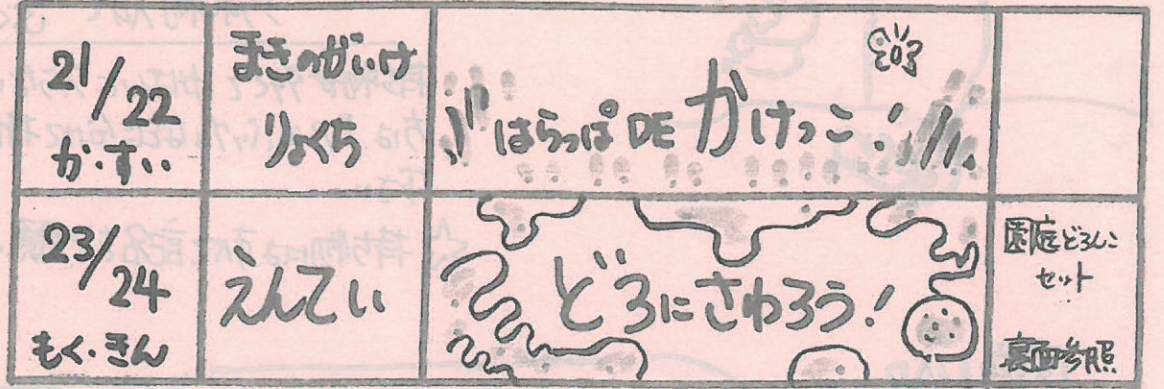 21/22
か・すい
まきのがいけ
りょくち
はらっぱDEかけっこ!
23/24
もく・きん
えんてい
どろにさわろう!
園庭どろんこ
セット
裏面参照